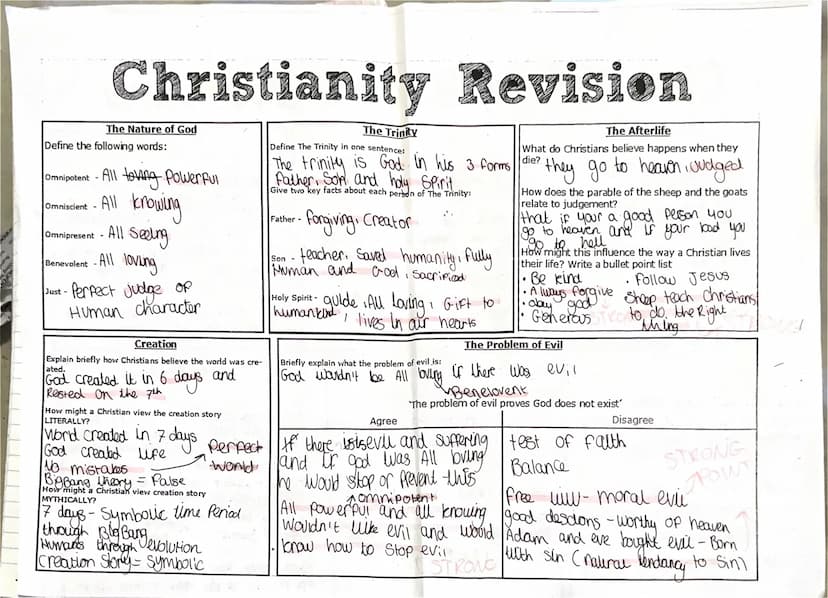 Christianity Revision
The Nature of God
Define the following words:
Omnipotent - All loving Powerful
Omniscient - All knowing
Omnipresent - All Seeing
Benevolent - All loving
Just - Perfect Judge of
Human character
The Trinity
Define The Trinity in one sentence:
The trinity is God in his 3 forms
Father, Son and holy Spirit
Give two key facts about each person of The Trinity:
Father - forgiving, Creator
Son - teacher, Saved humanity, fully
Human and God, Sacrificed
Holy Spirit - guide, All Loving, Gift to
humankind, lives in our hearts
The Afterlife
What do Christians believe happens when they
die? they go to heaven, Judged
How does the parable of the sheep and the goats
relate to judgement?
that if your a good person you
go to heaven and if your bad you
go to hell
How might this influence the way a Christian lives
their life? Write a bullet point list
• Be kind
• Always forgive
• obay god
• Generous
• Follow Jesus
• Sheep teach Christians
to do the Right
thing
Creation
Explain briefly how Christians believe the world was cre-
ated.
God created it in 6 days and
Rested on the 7th
How might a Christian view the creation story
LITERALLY?
World created in 7 days
God created life
No mistakes → Perfect
World
BigBang theory = False
How might a Christian view creation story
MYTHICALLY?
7 days - Symbolic time Period
through BigBang
Humans through evolution
Creation Story = Symbolic
The Problem of Evil
Briefly explain what the problem of evil is:
God wouldn't be All loving if there was evil
Benelovent
'The problem of evil proves God does not exist'
Agree
If there is evil and suffering
and if god was All loving
he would stop or prevent this
omnipotent
All powerful and all knowing
wouldn't like evil and would
know how to stop evil
STRONG
Disagree
test of faith
Balance
STRONG
POINT
free will - moral evil
good descions - worthy of heaven
Adam and eve bought evil - Born
with sin (natural tendancy to sin)